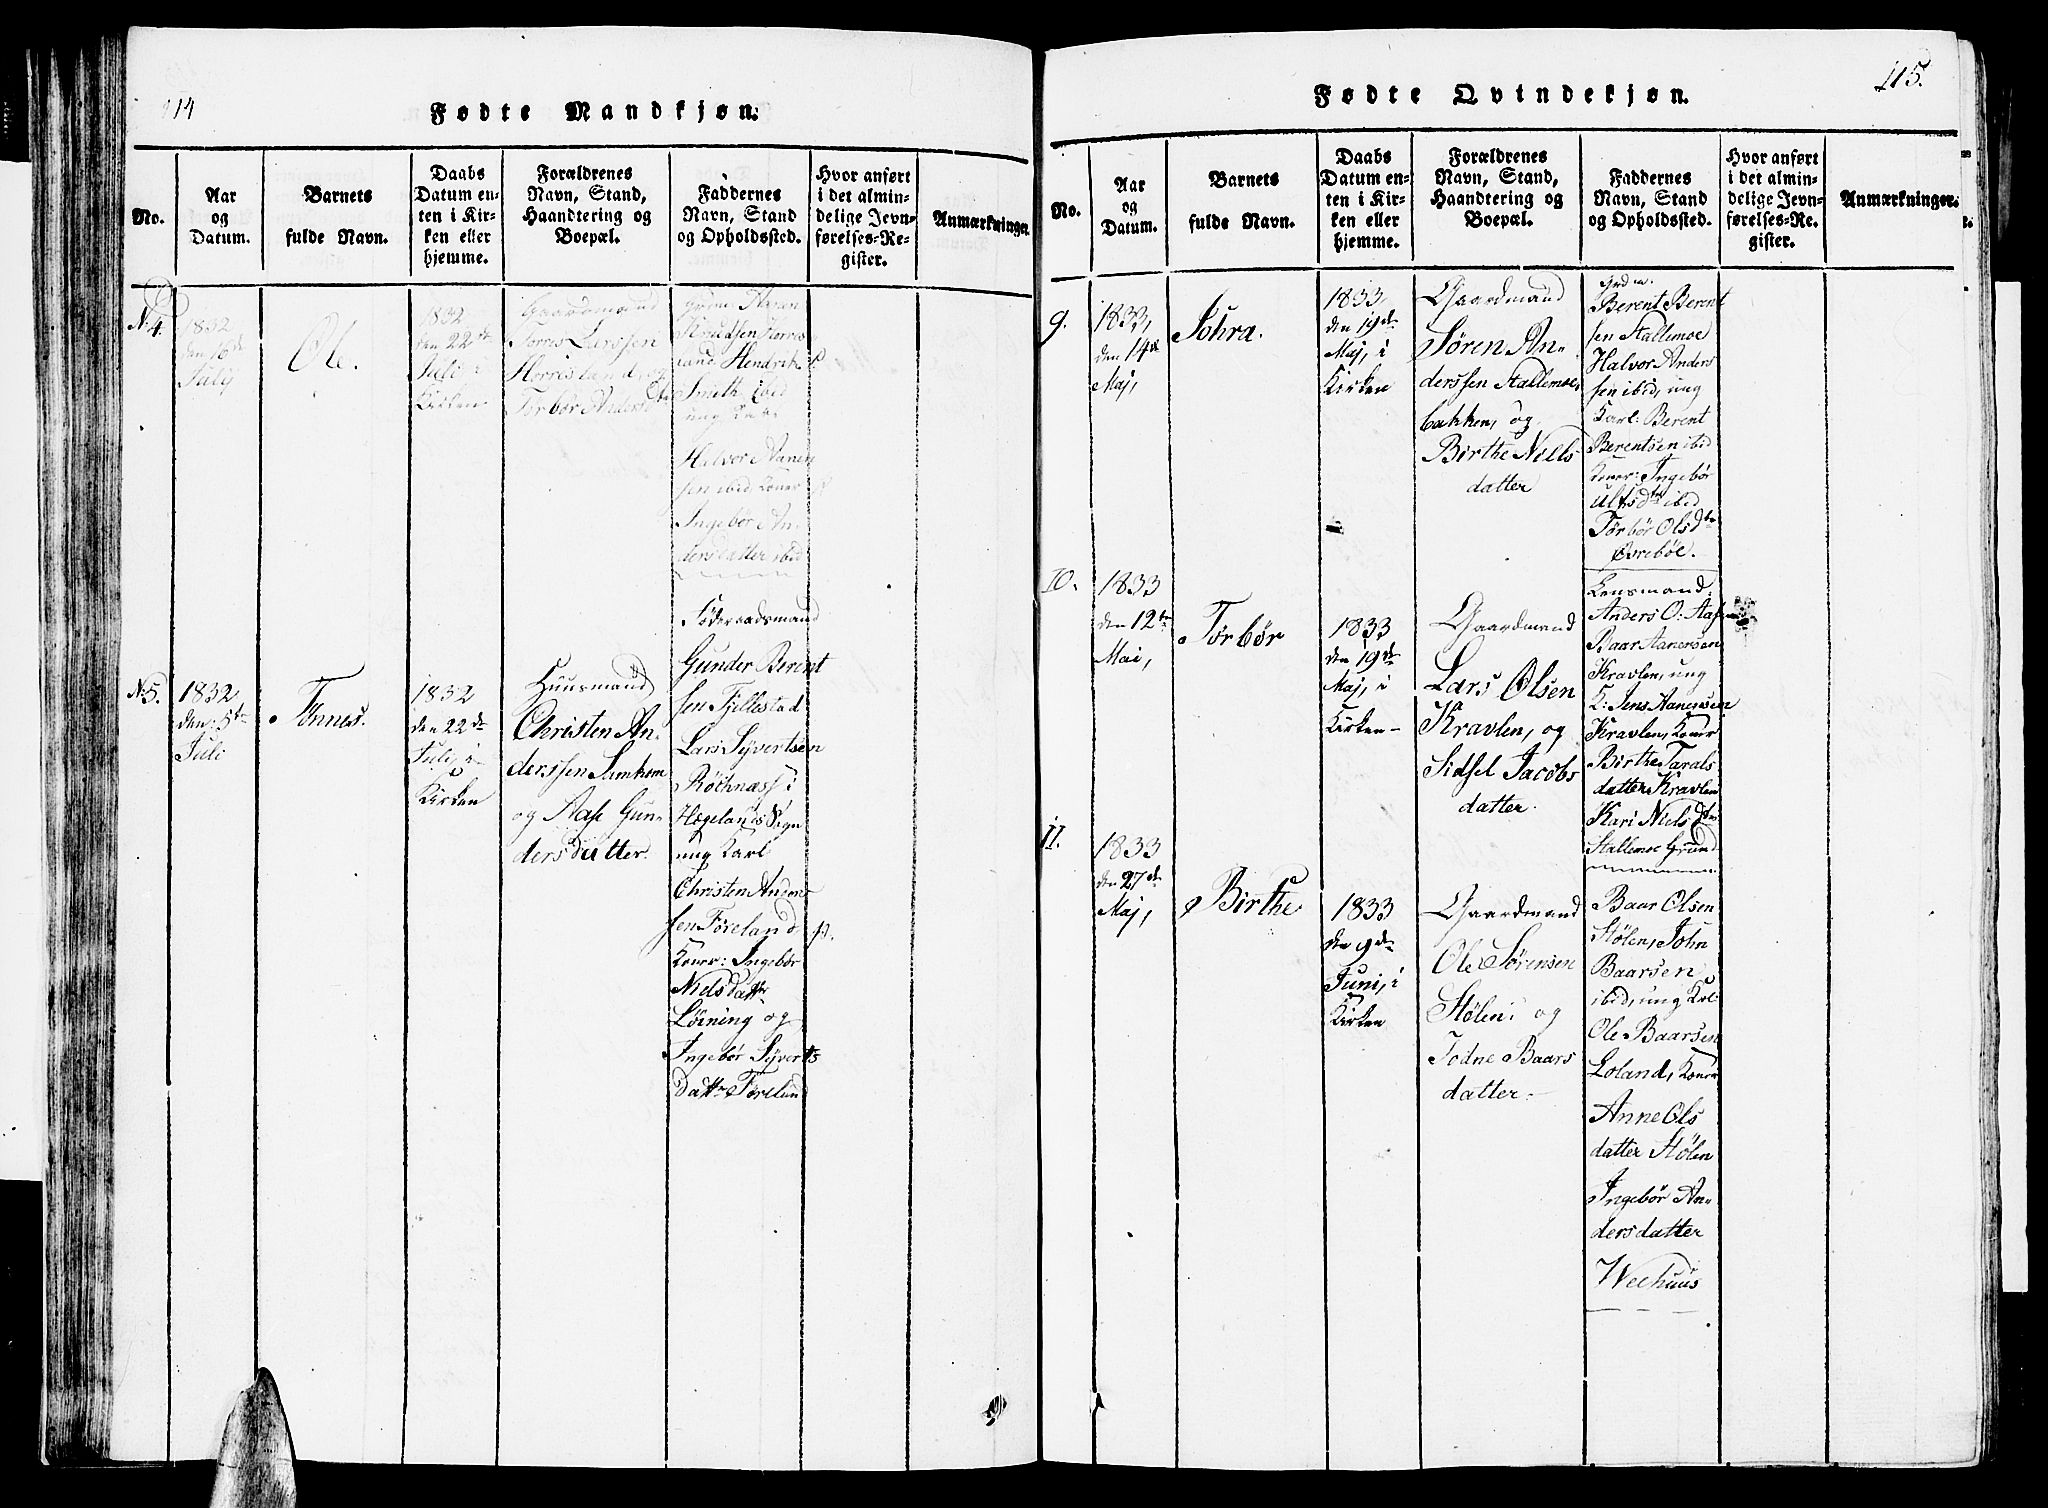 114
Fødte Mandkjøn.
No.
Aar
og
Datum.
Barnets
fulde Navn.
Daabs
Datum en-
ten i Kir-
ken eller
hjemme.
Forældrenes
Navn, Stand,
Haandtering og
Boepæl.
Faddernes
Navn, Stand
og Opholdssted.
Hvor anført
i det almin-
delige Jevn-
førelses-Re-
gister.
Anmærkninger.
N. 4.
1832
den 16de
Julij
Ole.
1832
den 22de
Juli i
Kirken
Gaardmand
Torris Larssen
Horrisland, og
Torbór Andersdtr
Aanen
Knudsen Horris
land, Hendrik
Smith ibid
ung Karl
Halvor Aanen
sen ibid, Koner
Ingebór An-
dersdatter ibid
N. 5.
1832
den 5te
Juli
Tønnes.
1832
den 22de
Juli, i
Kirken
Huusmand
Christen An-
derssen Samkom
og Aase Gun-
dersdatter.
Føderaadsmand
Gunder Berent
sen Fjellestad
Lars Syvertsen
i
Hægelands Sogn
ung Karl
Christen Anders
sen Føreland
Koner: Ingebór
Nielsdattr
Løining og
Ingebór Syverts
dattr Føreland
115.
Fødte Qvindekjøn.
No.
Aar
og
Datum.
Barnets
fulde Navn.
Daabs
Datum en-
ten i Kir-
ken eller
hjemme.
Forældrenes
Navn, Stand,
Haandtering og
Boepæl.
Faddernes
Navn, Stand
og Opholdssted.
Hvor anført
i det almin-
delige Jevn-
førelses-Re-
gister.
Anmærkninger.
9.
1833,
den 14de
Maj,
Sohra.
1833
den 19de
Maj, i
Kirken
Gaardmand
Søren An-
derssen Stallemoe,
bakken, og
Birthe Niels
datter
Grdm.
Berent Berent
sen Stallemoe
Halvor Anders
sen ibid, ung
Karl: Berent
Berentsen ibid
Koner: Ingebór
Ulfsdtr ibid
Tørbør Olsdtr
Øvrebøe.
10.
1833
den 12te
Mai,
Tørbør
1833
den 19de
Maj, i
Kirken
Gaardmand
Lars Olsen
Kravlen, og
Sidsel Jacobs
datter.
Lensmand:
Anders O:
Baar Aanensen
Kravlen, ung
K: Jens Aanensen
Kravlen, Koner
Birthe Tarals
datter Kravlen
Kari Nielsdtr
Stallemoe Grund
11.
1833
den 27de
Maj,
Birthe
1833
den 9de
Juni, i
Kirken
Gaardmand
Ole Sørensen
Stølen, og
Jodne Baars
datter.
Baar Olsen
Stølen, John
Baarsen
ibid, ung Krl:
Ole Baarsen
Loland, Koner
Anne Ols
datter Stølen
Ingebór An-
dersdatter
Weehuus